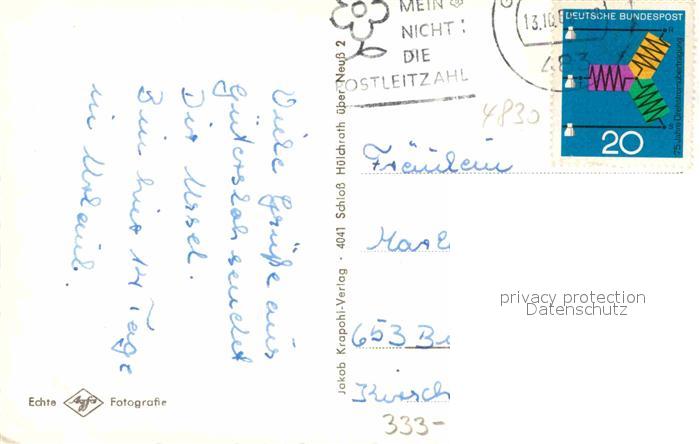 Viele Grüße aus
Gütersloh sendet
Dir Ursel.
Bin hier 14 Tage
in Urlaub.
Echte Agfa Fotografie
Jakob Krapohl-Verlag · 4041 Schloß Hülchrath über Neuß 2
MEIN
NICHT:
DIE
POSTLEITZAHL
G
13.10.
483
DEUTSCHE BUNDESPOST
75 Jahre Drehstromübertragung
R
S
20
4830
Fräulein
653 Bi
Kirsch
333-
privacy protection
Datenschutz